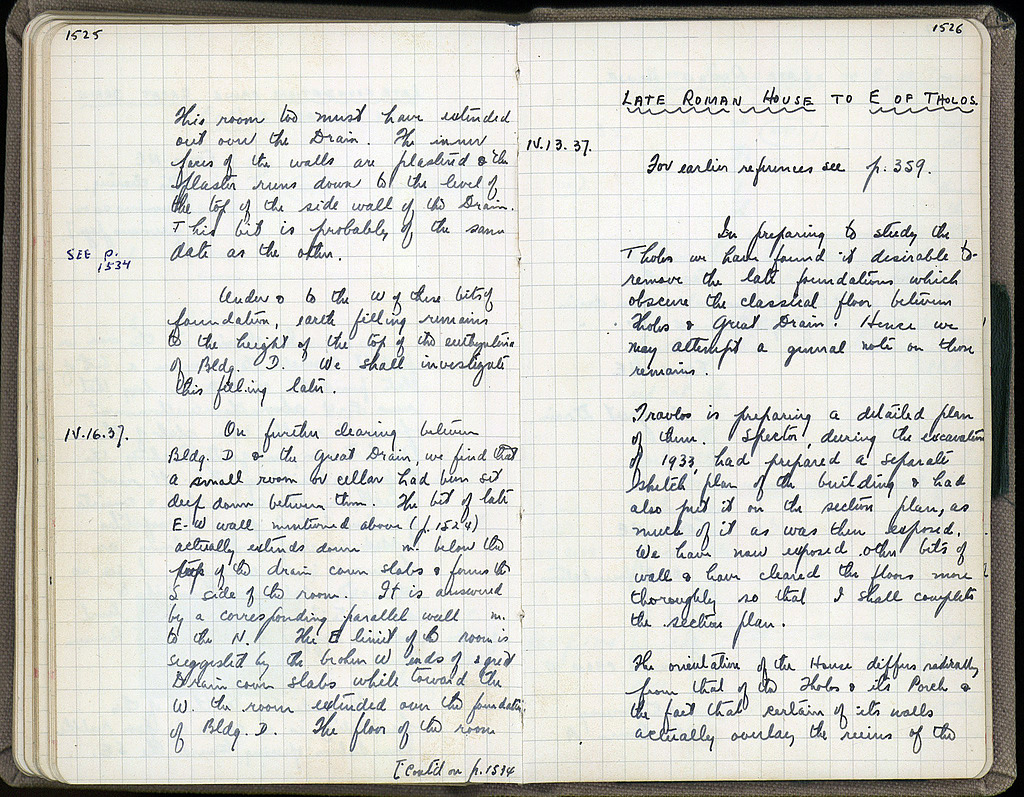 1525
This room too must have extended
out over the Drain. The inner
faces of the walls are plastered & the
plaster runs down to the level of
the top of the side wall of the Drain.
This bit is probably of the same
date as the other.
SEE p.
1534
Under & to the W of these bits of
foundation, earth filling remains
to the height of the top of the euthynteria
of Bldg. D. We shall investigate
this filling later.
IV.16.37.
On further clearing between
Bldg. D & the Great Drain, we find that
a small room or cellar had been set
deep down between them. The bit of late
E-W wall mentioned above (p. 1524)
actually extends down m. below the
tops of the drain cover slabs & forms the
S side of the room. It is answered
by a corresponding parallel wall m.
to the N. The E limit of the room is
suggested by the broken W ends of great
Drain cover slabs while toward the
W. the room extended over the foundation
of Bldg. D. The floor of the room
[Cont'd on p. 1534
1526
LATE ROMAN HOUSE TO E OF THOLOS.
IV.13.37.
For earlier references see p. 359.
In preparing to study the
Tholos we have found it desirable to
remove the late foundations which
obscure the classical floor between
Tholos & Great Drain. Hence we
may attempt a general note on those
remains.
Travlos is preparing a detailed plan
of them. Spector, during the excavation
of 1933, had prepared a separate
sketch plan of the building & had
also put it on the section plan, as
much of it as was then exposed.
We have now exposed other bits of
wall & have cleared the floors more
thoroughly so that I shall complete
the section plan.
The orientation of the House differs radically
from that of the Tholos & its Porch &
the fact that certain of its walls
actually overlay the ruins of the